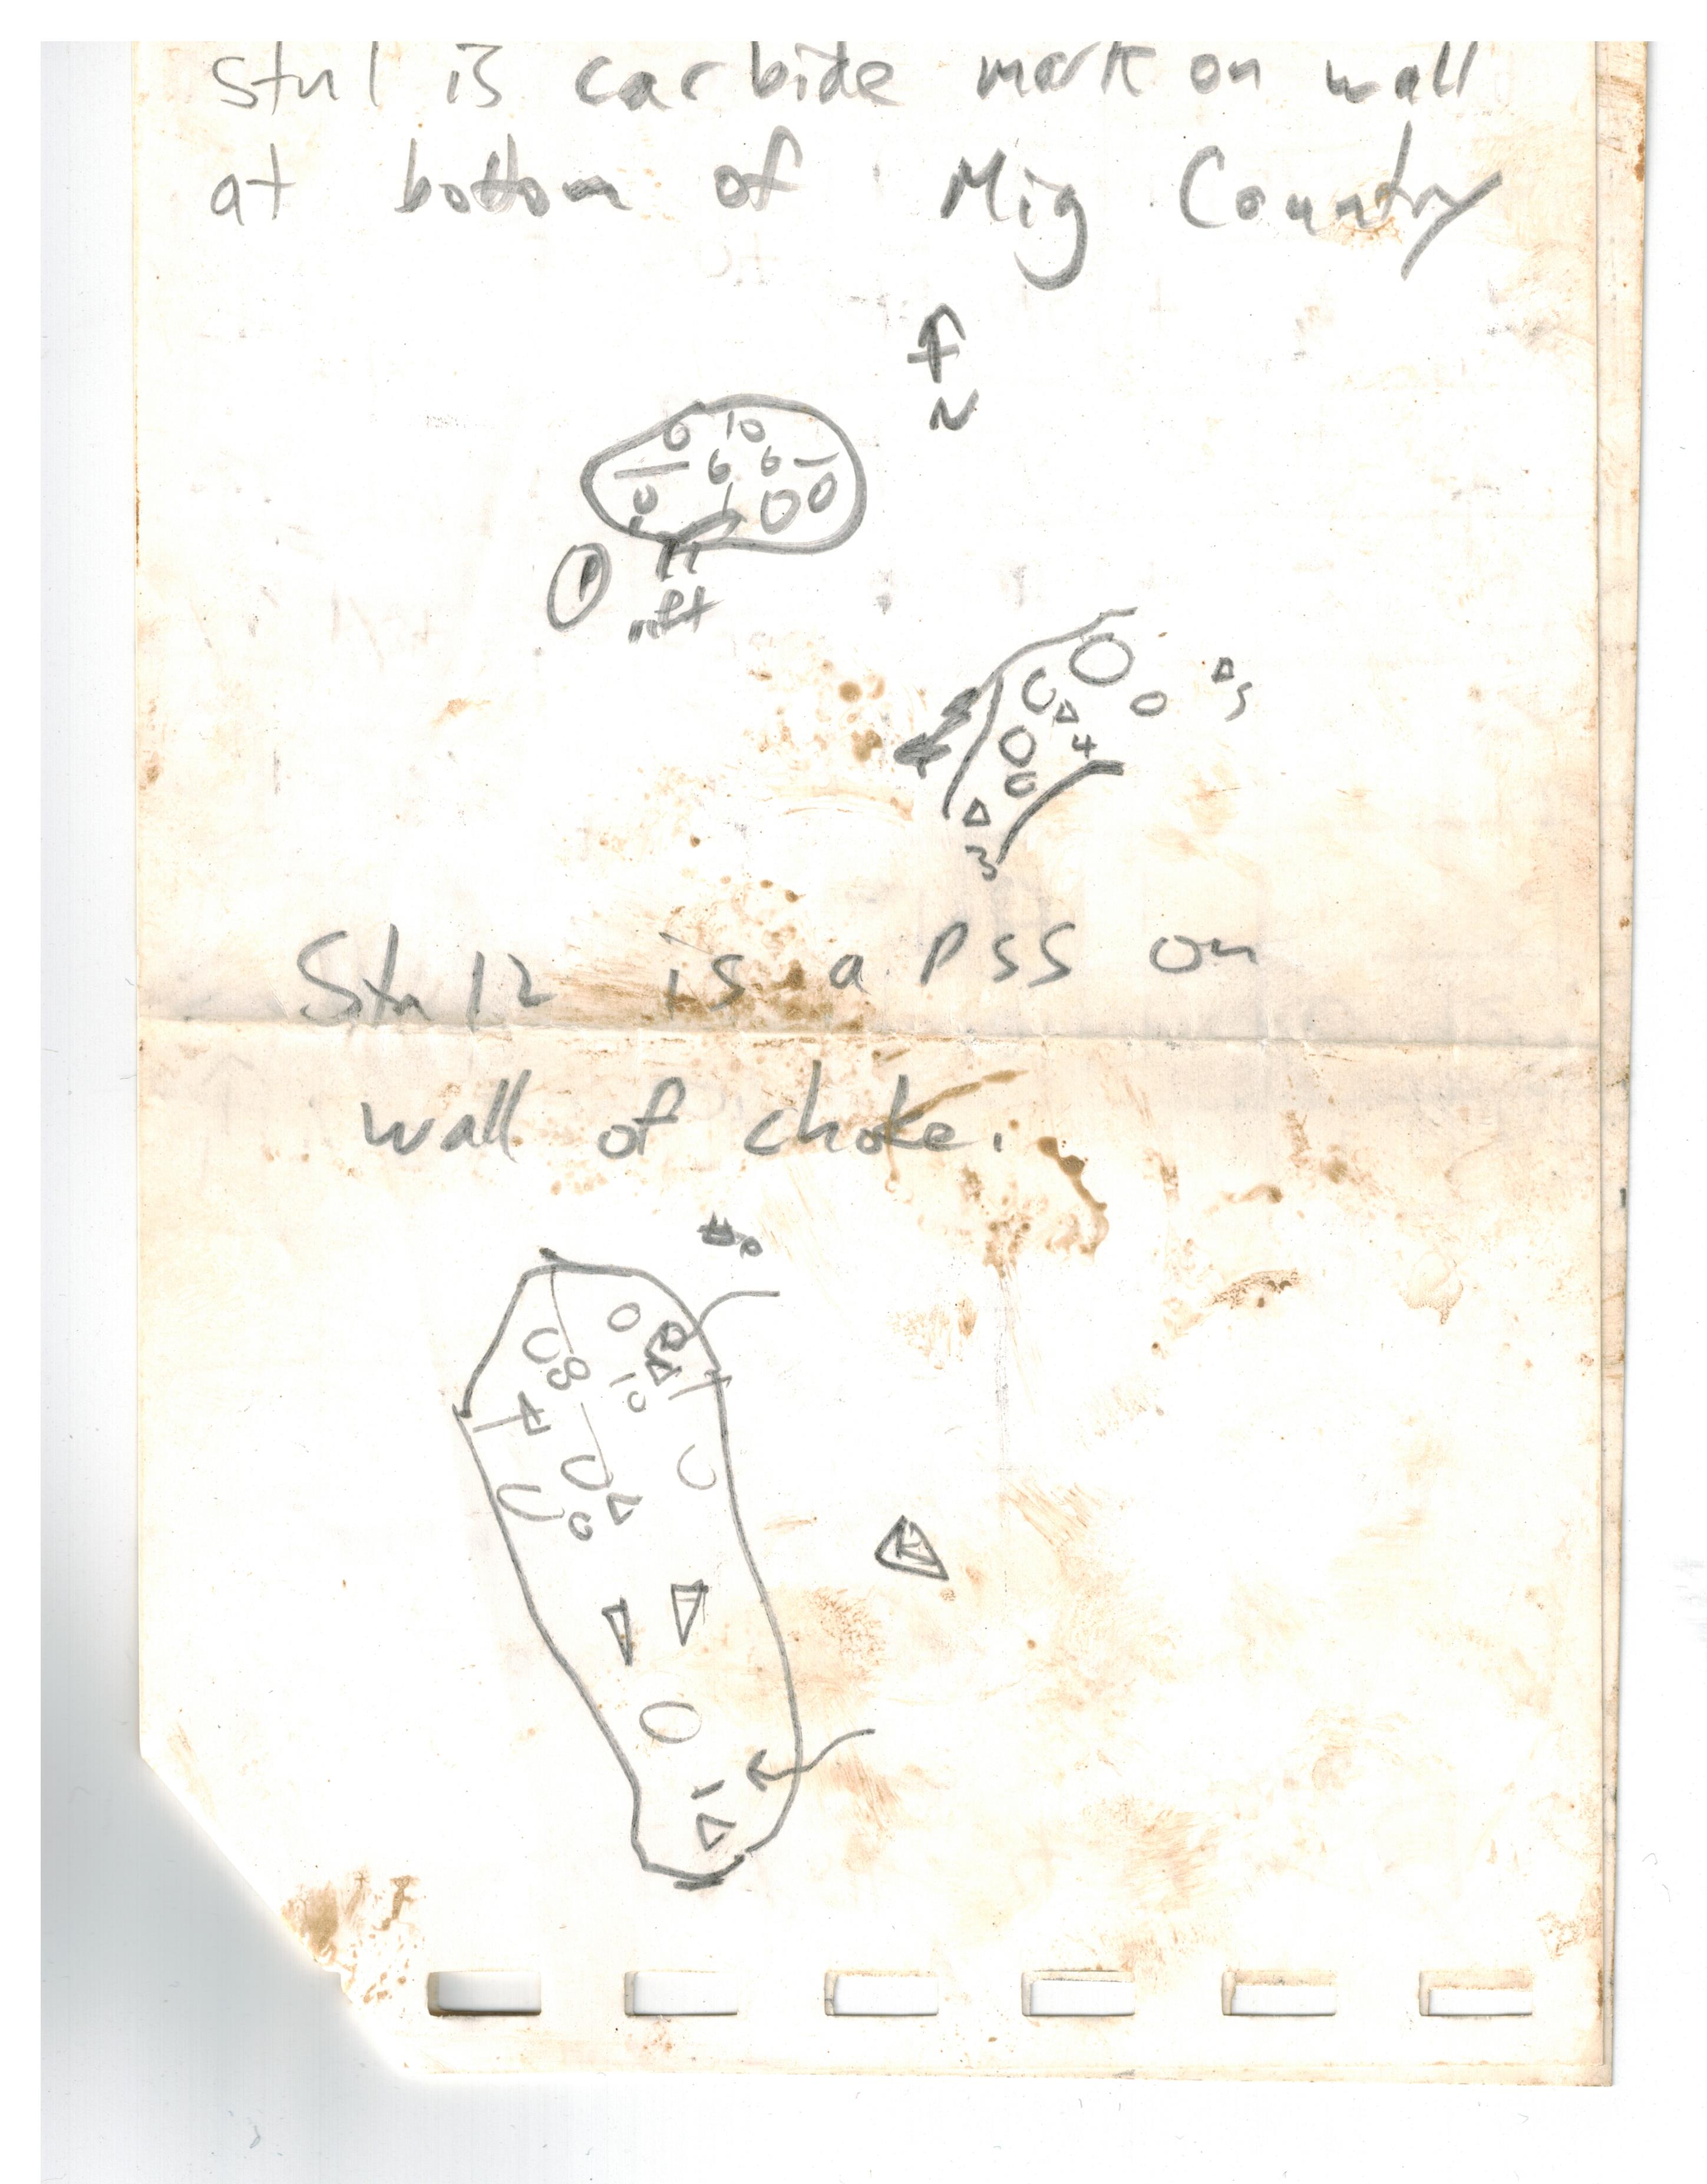 Stn 1 is carbide mark on wall
at bottom of Mig Country
N
10
1
5
4
3
Stn 12 is a PSS on
wall of choke.